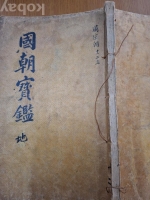 kobay
國朝寶鑑 地